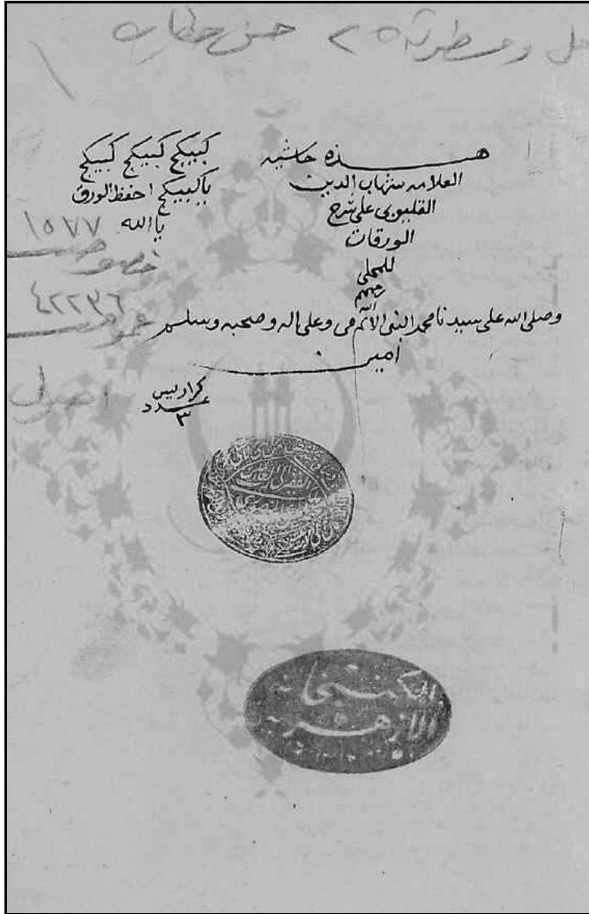 ومسطرته ٢٥
هـذه حاشية
العلامه شهاب الدين
القليوبى على شرح
الورقات
للمحلى
رحمهم
الله
كبيكج كبيكج كبيكج
ياكبيكج احفظ الورق
ياالله
١٥٧٧
خصوص
٤٢٢٣٦
عموم
اصول
وصلى الله على سيدنا محمد النبى الامى وعلى اله وصحبه وسلم
امين
كراريس
عدد
٣
الكتبخانه
الازهريه